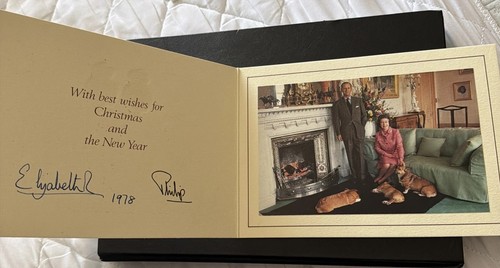 With best wishes for
Christmas
and
the New Year
Elizabeth R
1978
Philip